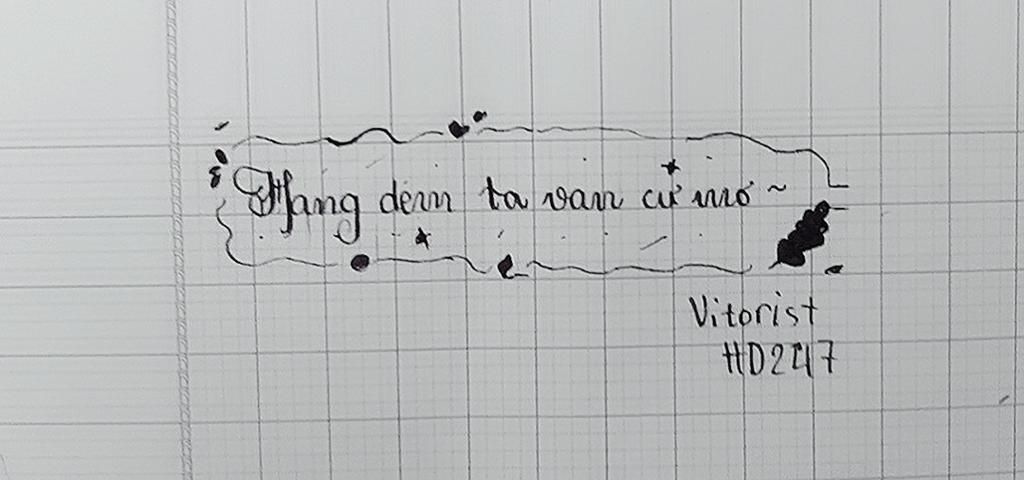 Hang dem ta van cứ mơ ~
Vitorist
HD247